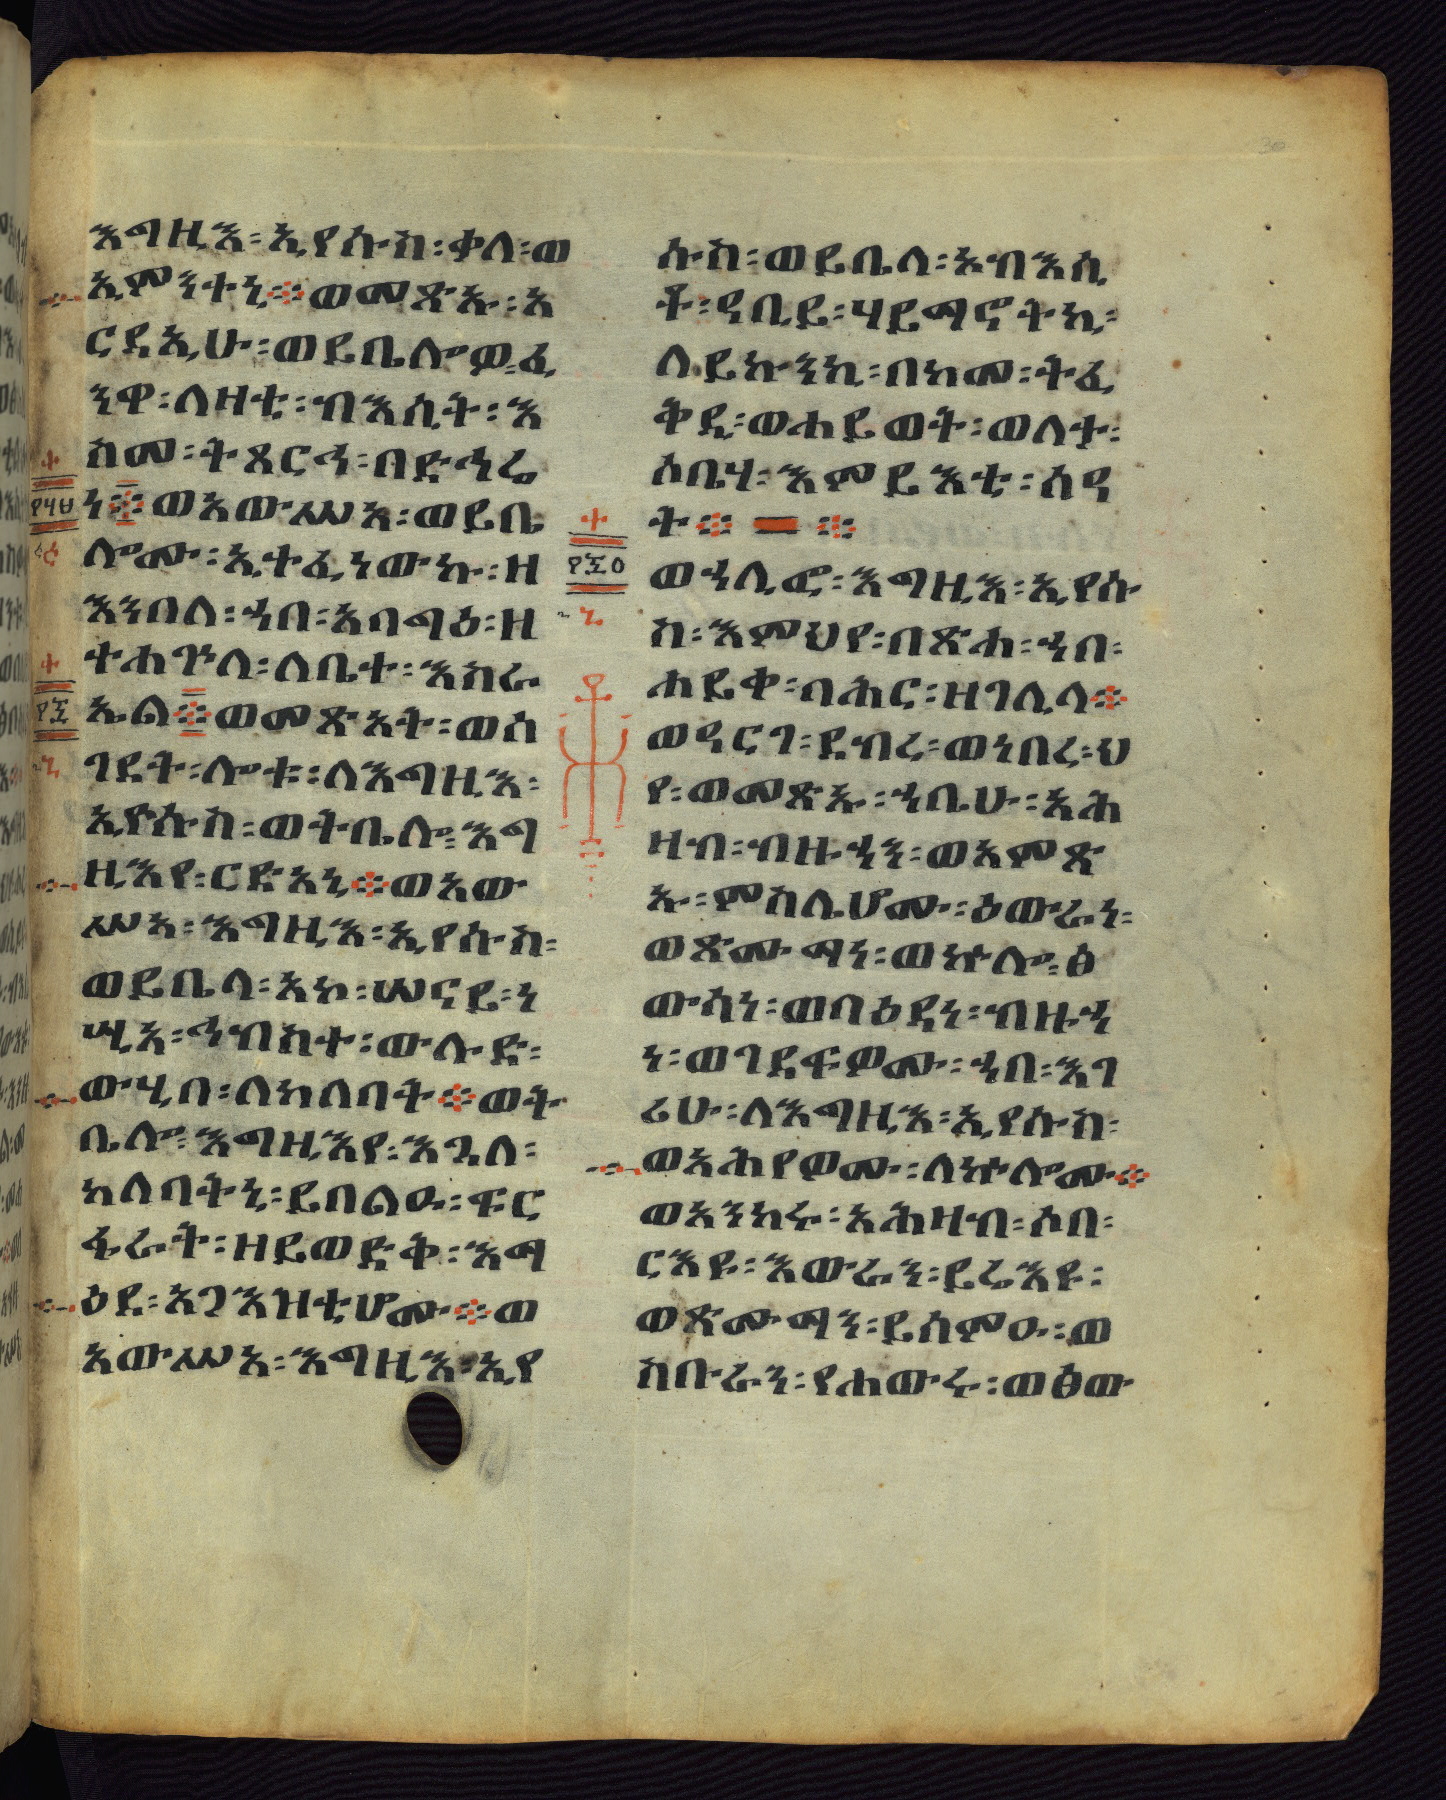 እግዚእ፡ ኢየሱስ፡ ቃለ፡ ወ
ኢምንተኒ፨ ወመጽኡ፡ አ
ርዳኢሁ፡ ወይቤሎዎ፡ ፈ
ንዋ፡ ለዛቲ፡ ብእሲት፡ እ
ስመ፡ ትጸርኅ፡ በድኅሬ
ነ፨ ወአውሥአ፡ ወይቤ
ሎሙ፡ ኢተፈነውኩ፡ ዘ
እንበለ፡ ኀበ፡ አባግዕ፡ ዘ
ተሐጕለ፡ ለቤተ፡ እስራ
ኤል፨ ወመጽአት፡ ወሰ
ገደት፡ ሎቱ፡ ለእግዚእ፡
ኢየሱስ፡ ወትቤሎ፡ እግ
ዚእየ፡ ርድአኒ፨ ወአው
ሥአ፡ እግዚእ፡ ኢየሱስ፡
ወይቤላ፡ አኮ፡ ሠናይ፡ ነ
ሢአ፡ ኅብስተ፡ ውሉድ፡
ውሂብ፡ ለከለባት፨ ወት
ቤሎ፡ እግዚእየ፡ እጓለ፡
ከለባትኒ፡ ይበልዑ፡ ፍር
ፋራት፡ ዘይወድቅ፡ እማ
ዕደ፡ አጋእዝቲሆሙ፨ ወ
አውሥአ፡ እግዚእ፡ ኢየ
፲፻፶፱
፲፻፷
ሱስ፡ ወይቤላ፡ ኦብእሲ
ቶ፡ ዓቢይ፡ ሃይማኖትኪ፡
ለይኩንኪ፡ በከመ፡ ትፈ
ቅዲ፡ ወሐይወት፡ ወለታ፡
ሶቤሃ፡ እምይእቲ፡ ሰዓ
ት፨ ፨
ወኀሊፎ፡ እግዚእ፡ ኢየሱ
ስ፡ እምህየ፡ በጽሐ፡ ኀበ፡
ሐይቀ፡ ባሕር፡ ዘገሊላ፨
ወዓርገ፡ ደብረ፡ ወነበረ፡ ህ
የ፡ ወመጽኡ፡ ኀቤሁ፡ አሕ
ዛብ፡ ብዙኃን፡ ወአምጽ
ኡ፡ ምስሌሆሙ፡ ዕውራነ፡
ወጽሙማነ፡ ወኵሎ፡ ፅ
ውሳነ፡ ወባዕዳነ፡ ብዙኃ
ነ፡ ወገደፍዎሙ፡ ኀበ፡ እገ
ሪሁ፡ ለእግዚእ፡ ኢየሱስ፡
ወአሕየዎሙ፡ ለኵሎሙ፨
ወአንከሩ፡ አሕዛብ፡ ሶበ፡
ርእዩ፡ እውራን፡ ይሬእዩ፡
ወጽሙማን፡ ይሰምዑ፡ ወ
ስቡራን፡ የሐውሩ፡ ወፅው